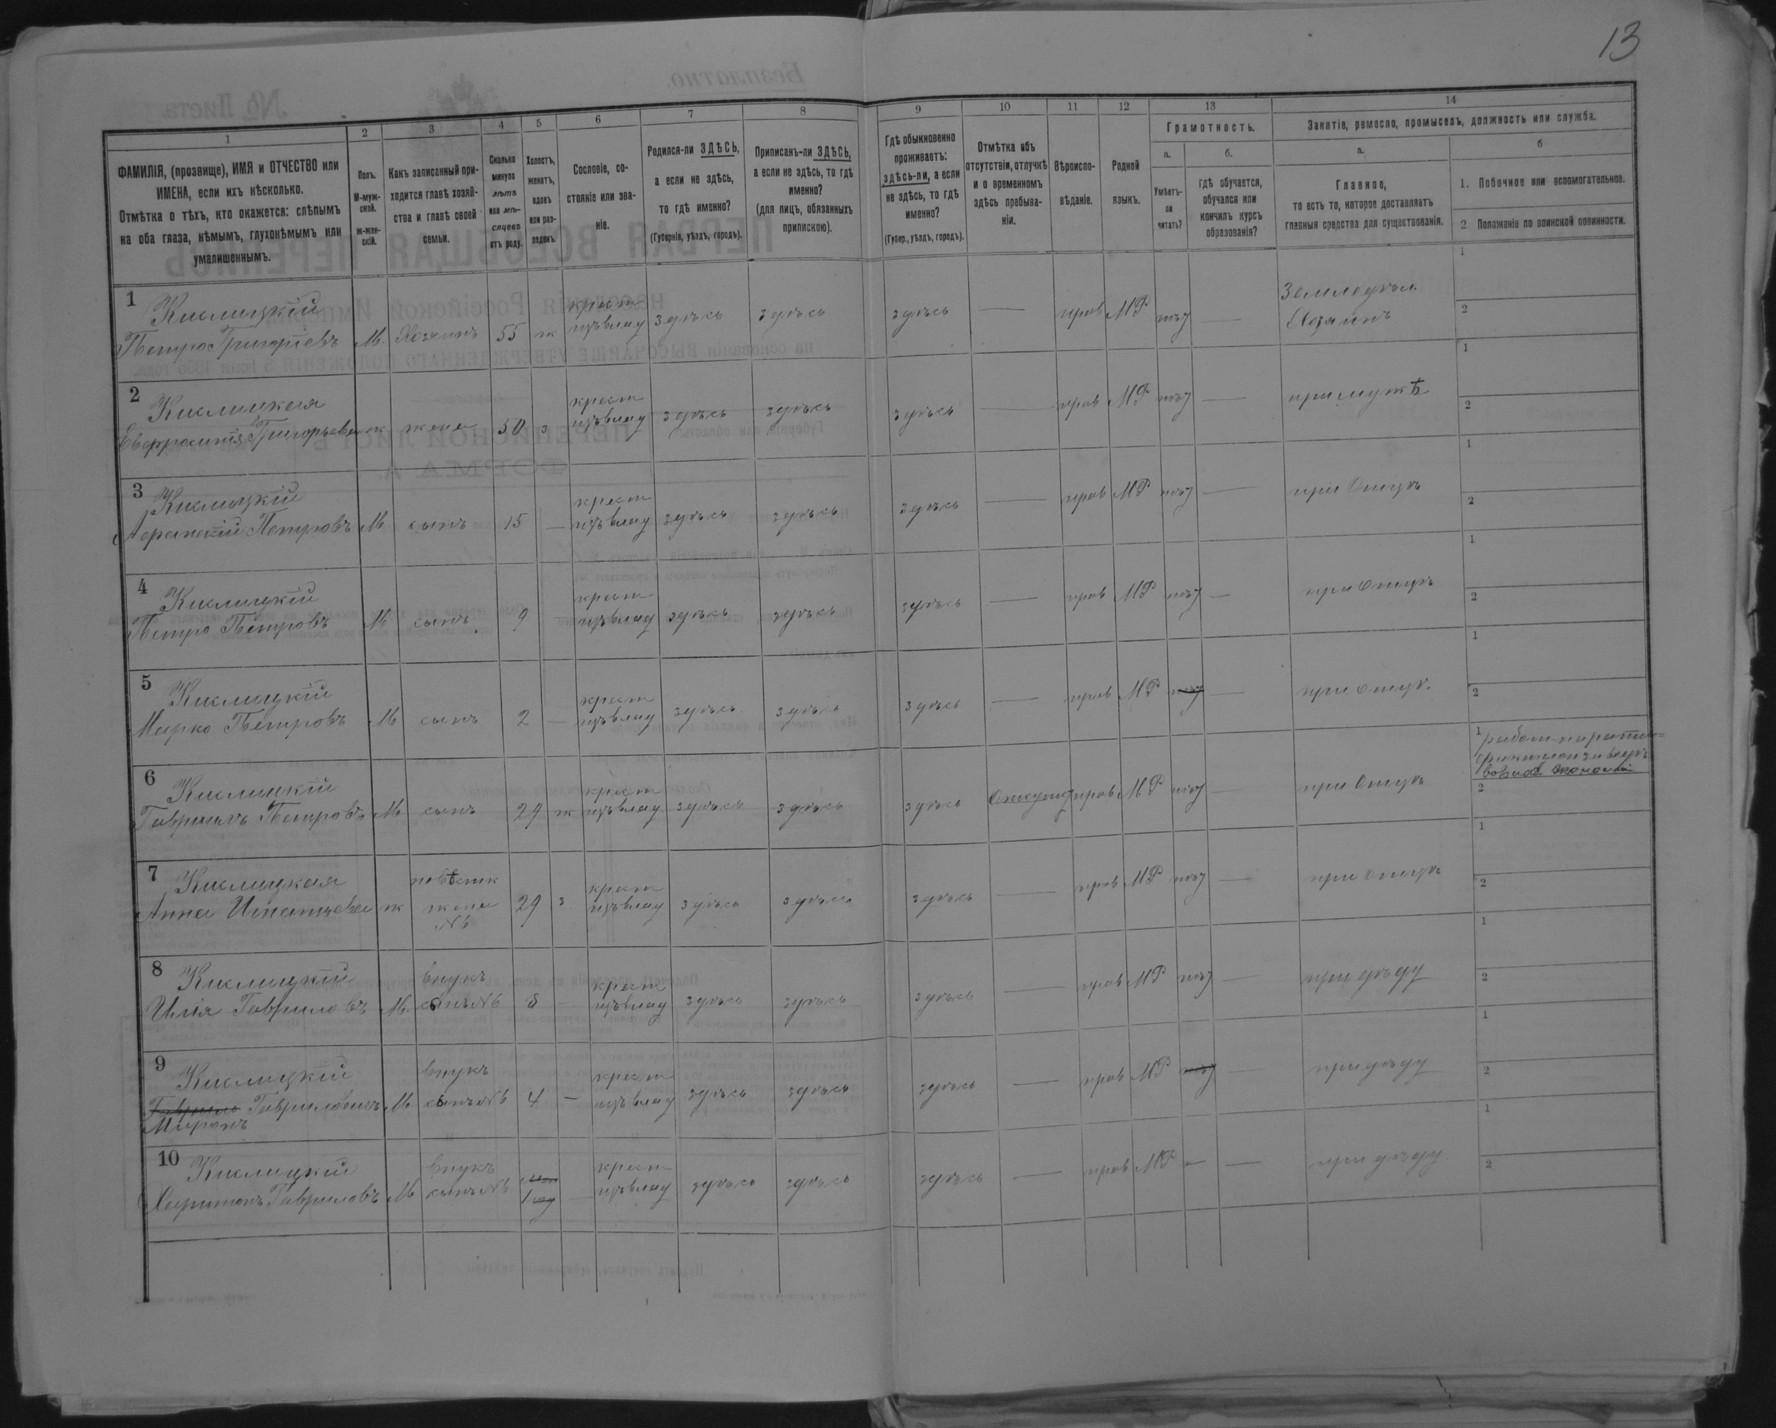 13
1
2
3
4
5
6
7
8
9
10
11
12
13
14
ФАМИЛІЯ, (прозвище), ИМЯ и ОТЧЕСТВО или
ИМЕНА, если ихъ нѣсколько.
Отмѣтка о тѣхъ, кто окажется: слѣпымъ
на оба глаза, нѣмымъ, глухонѣмымъ или
умалишеннымъ.
Полъ.
М-муж-
ской.
Ж-жен-
скій.
Какъ записанный при-
ходится главѣ хозяй-
ства и главѣ своей
семьи.
Сколько
минуло
лѣтъ
или мѣ-
сяцевъ
отъ роду.
Холостъ,
женатъ,
вдовъ
или раз-
веденъ.
Сословіе, со-
стояніе или зва-
ніе.
Родился-ли ЗДѢСЬ,
а если не здѣсь,
то гдѣ именно?
(Губернія, уѣздъ, городъ).
Приписанъ-ли ЗДѢСЬ,
а если не здѣсь, то гдѣ
именно?
(для лицъ, обязанныхъ
припискою).
Гдѣ обыкновенно
проживаетъ:
здѣсь-ли, а если
не здѣсь, то гдѣ
именно?
(Губер., уѣздъ, городъ).
Отмѣтка объ
отсутствіи, отлучкѣ
и о временномъ
здѣсь пребыва-
ніи.
Вѣроиспо-
вѣданіе.
Родной
языкъ.
Грамотность.
а.
Умѣетъ-
ли
читать?
б.
гдѣ обучается,
обучался или
кончилъ курсъ
образованія?
Занятіе, ремесло, промыселъ, должность или служба.
а.
Главное,
то есть то, которое доставляетъ
главныя средства для существованія.
б
1. Побочное или вспомогательное.
2 Положеніе по воинской повинности.
1
Кислицкій
Петро Григоріевъ М. Хозяинъ 55 ж крест здѣсь здѣсь здѣсь — прав МР нѣт — Земледѣл.
Хозяинъ
1
2
2
Кислицкая
Евфросинія Григорьева ж жена 50 з крест здѣсь здѣсь здѣсь — прав МР нѣт — при мужѣ
1
2
3
Кислицкій
Петровъ М сынъ 15 — крест здѣсь здѣсь здѣсь — прав МР нѣт — при Отцѣ
1
2
4
Кислицкій
Петро Петровъ М сынъ 9 крест здѣсь здѣсь здѣсь — прав МР нѣт — при Отцѣ
1
2
5
Кислицкій
Марко Петровъ М сынъ 2 — крест здѣсь здѣсь здѣсь — прав МР нѣт — при отцѣ.
1
2
6
Кислицкій
Гаврилъ Петровъ М сынъ 29 ж крест здѣсь здѣсь здѣсь прав МР нѣт — при Отцѣ
1
2
7
Кислицкая
Анна Игнатьева ж невѣстк
жена
№6
29 з крест здѣсь здѣсь здѣсь — прав МР нѣт — при отцѣ
1
2
8
Кислицкій
Илія Гавриловъ М. внукъ
сынъ №6 8 — крест здѣсь здѣсь здѣсь — прав МР нѣт — при дѣду
1
2
9
Кислицкій
Гавриловъ
Миронъ
М внукъ
сынъ №6 4 — крест здѣсь здѣсь здѣсь — прав МР нѣт — при дѣду
1
2
10
Кислицкій
Харитонъ Гавриловъ М внукъ
сынъ №6 1 год — крест здѣсь здѣсь здѣсь — прав МР — — при дѣду
1
2